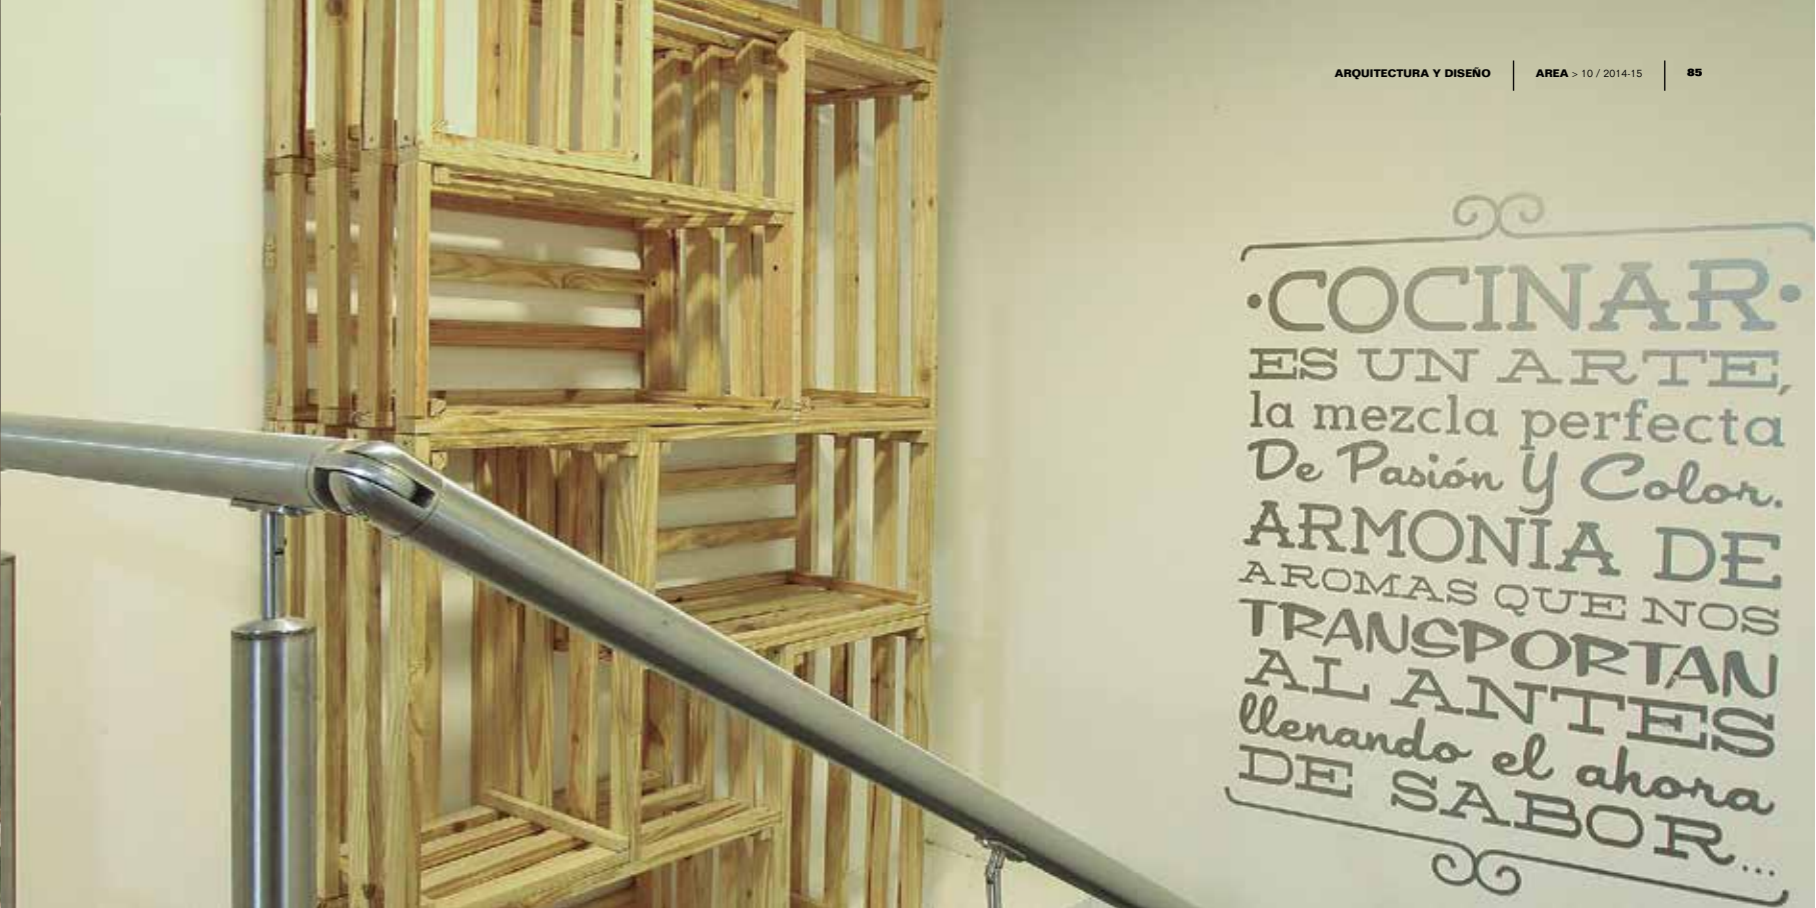 ARQUITECTURA Y DISEÑO AREA > 10 / 2014-15 85
•COCINAR•
ES UN ARTE,
la mezcla perfecta
De Pasión Y Color.
ARMONÍA DE
AROMAS QUE NOS
TRANSPORTAN
AL ANTES
llenando el ahora
DE SABOR...